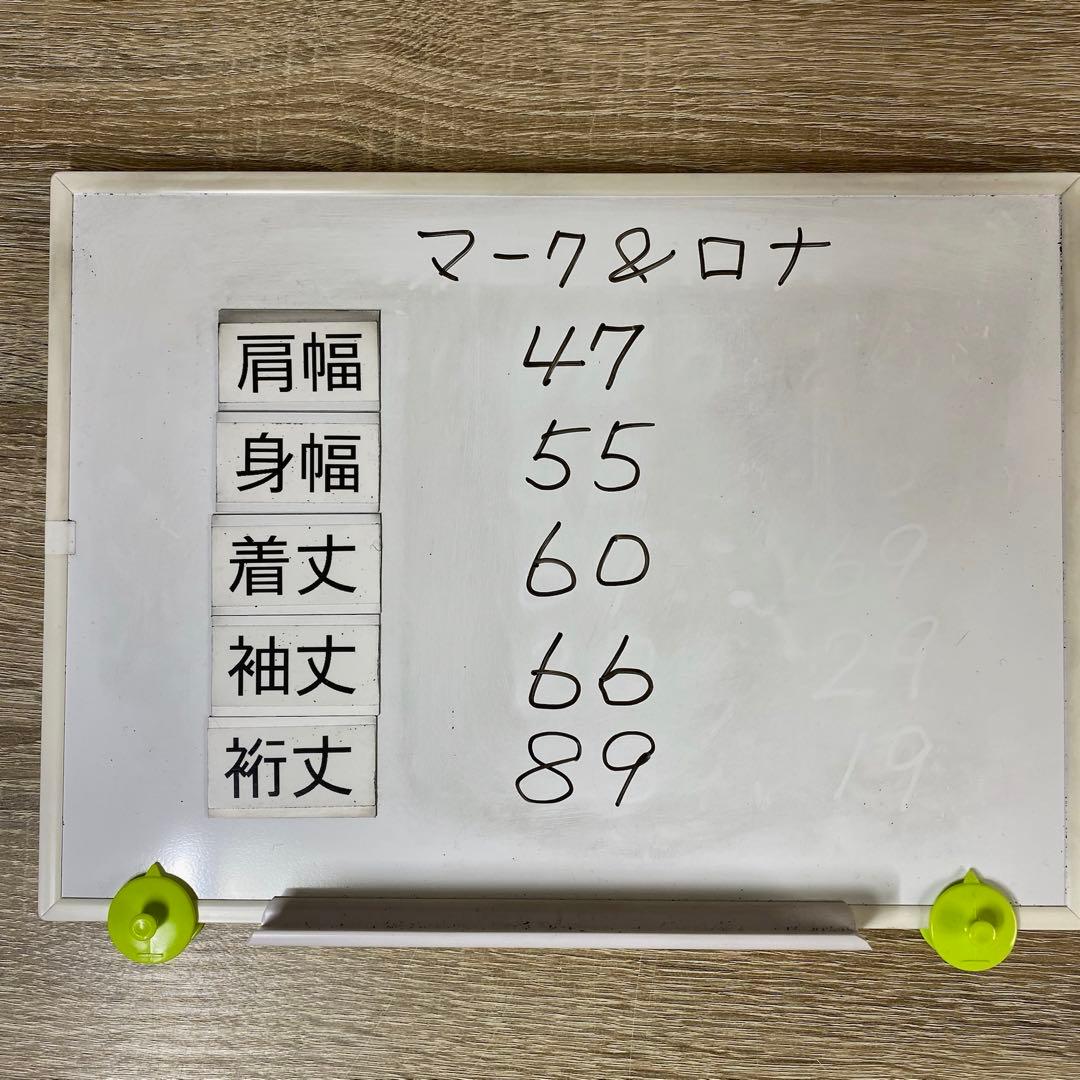 マーク&ロナ
肩幅 47
身幅 55
着丈 60 69
袖丈 66 29
裄丈 89 19